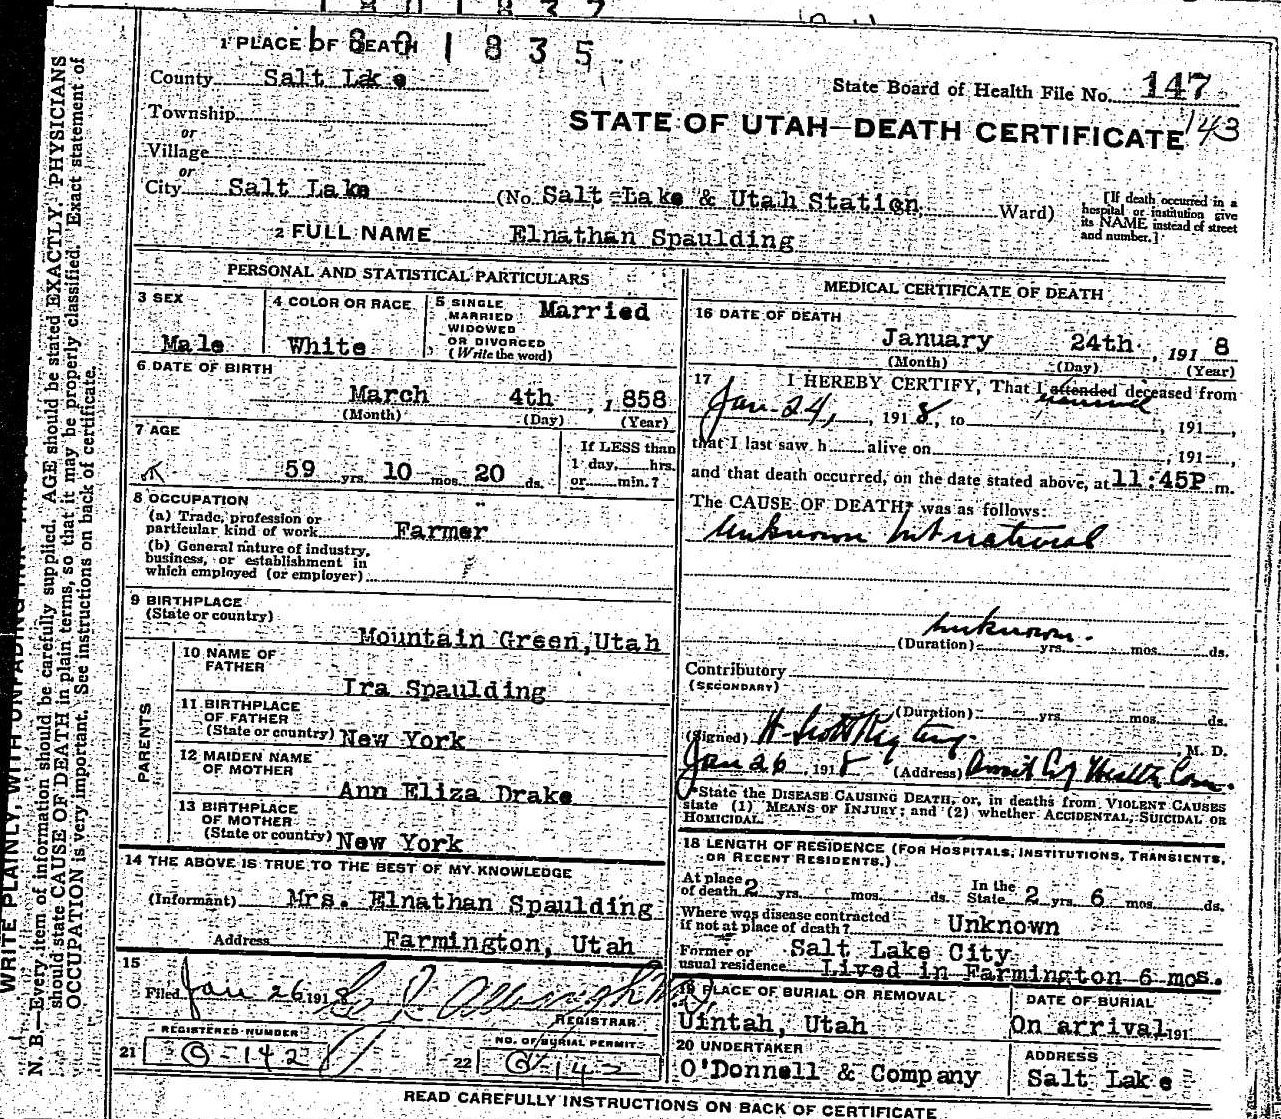 1 PLACE OF DEATH 1801835
County Salt Lake
State Board of Health File No. 147
Township
or
STATE OF UTAH—DEATH CERTIFICATE 143
Village
or
City Salt Lake (No. Salt Lake & Utah Station, Ward)
[If death occurred in a
hospital or institution give
its NAME instead of street
and number.]
2 FULL NAME Elnathan Spaulding
PERSONAL AND STATISTICAL PARTICULARS
3 SEX
Male
4 COLOR OR RACE
White
5 SINGLE
MARRIED
WIDOWED
OR DIVORCED
(Write the word)
Married
6 DATE OF BIRTH
March 4th, 1858
(Month) (Day) (Year)
7 AGE
59 yrs. 10 mos. 20 ds.
If LESS than
1 day, hrs.
or min.?
8 OCCUPATION
(a) Trade, profession or
particular kind of work Farmer
(b) General nature of industry,
business, or establishment in
which employed (or employer)
9 BIRTHPLACE
(State or country)
Mountain Green, Utah
PARENTS
10 NAME OF
FATHER
Ira Spaulding
11 BIRTHPLACE
OF FATHER
(State or country) New York
12 MAIDEN NAME
OF MOTHER
Ann Eliza Drake
13 BIRTHPLACE
OF MOTHER
(State or country) New York
14 THE ABOVE IS TRUE TO THE BEST OF MY KNOWLEDGE
(Informant) Mrs. Elnathan Spaulding
Address Farmington, Utah
15
Filed Jan 26 1918
REGISTRAR
REGISTERED NUMBER
21 O-142
NO. OF BURIAL PERMIT
22 O-142
MEDICAL CERTIFICATE OF DEATH
16 DATE OF DEATH
January 24th, 1918
(Month) (Day) (Year)
17 I HEREBY CERTIFY, That I attended deceased from
Jan. 24, 1918, to , 191 ,
that I last saw h alive on , 191 ,
and that death occurred, on the date stated above, at 11:45P m.
The CAUSE OF DEATH* was as follows:
Unknown but natural
Unknown.
(Duration) yrs. mos. ds.
Contributory
(SECONDARY)
(Duration) yrs. mos. ds.
(Signed) H. Scott M. D.
Jan 26, 1918 (Address) City Health Com.
*State the DISEASE CAUSING DEATH, or, in deaths from VIOLENT CAUSES
state (1) MEANS OF INJURY; and (2) whether ACCIDENTAL, SUICIDAL OR
HOMICIDAL.
18 LENGTH OF RESIDENCE (FOR HOSPITALS, INSTITUTIONS, TRANSIENTS,
OR RECENT RESIDENTS.)
At place
of death 2 yrs. mos. ds. In the
State 2 yrs. 6 mos. ds.
Where was disease contracted
if not at place of death? Unknown
Former or
usual residence Salt Lake City
Lived in Farmington 6 mos.
19 PLACE OF BURIAL OR REMOVAL
Uintah, Utah
DATE OF BURIAL
On arrival 191
20 UNDERTAKER
O'Donnell & Company
ADDRESS
Salt Lake
READ CAREFULLY INSTRUCTIONS ON BACK OF CERTIFICATE
WRITE PLAINLY, WITH UNFADING INK
N. B.—Every item of information should be carefully supplied. AGE should be stated EXACTLY. PHYSICIANS
should state CAUSE OF DEATH in plain terms, so that it may be properly classified. Exact statement of
OCCUPATION is very important. See instructions on back of certificate.